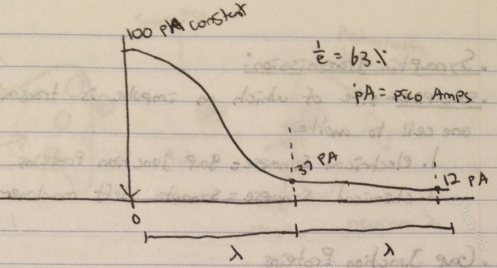 100 pA constant
1/e = 63%
pA = pico Amps
37 pA
12 pA
0
λ
λ